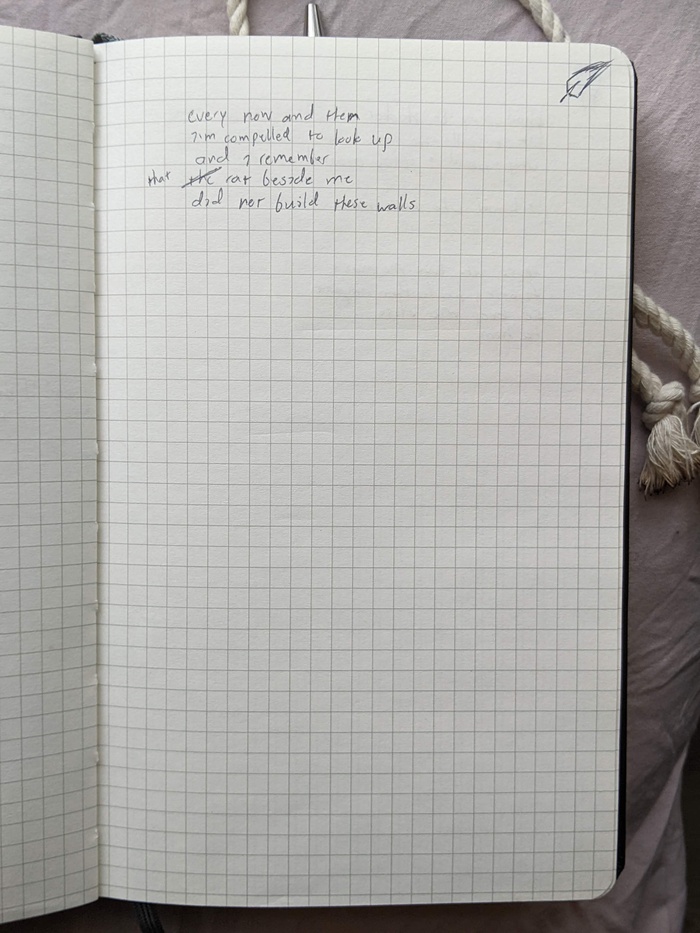 every now and then
I'm compelled to look up
and I remember
that the rat beside me
did not build these walls